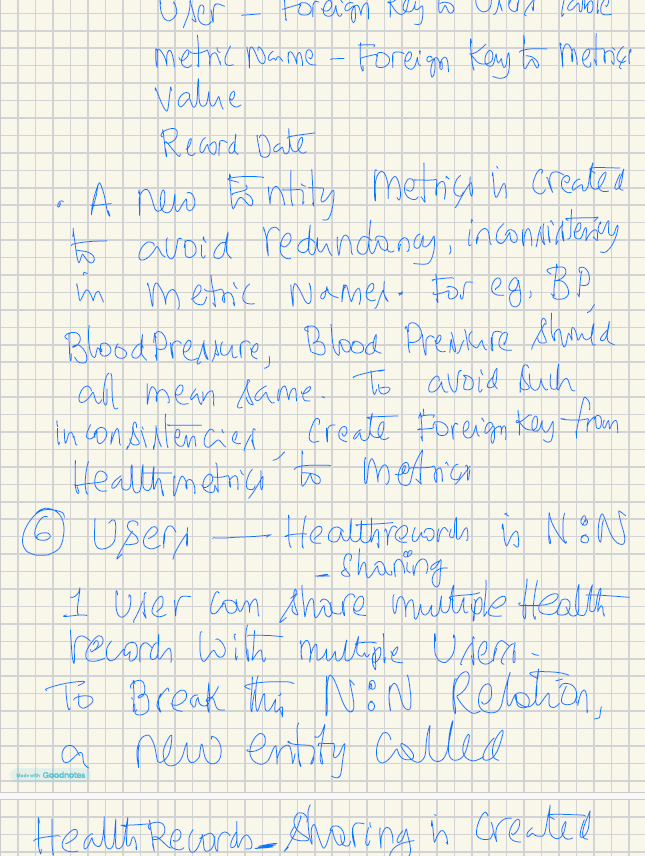 User – Foreign Key to Users Table
metric Name – Foreign Key to metrics
Value
Record Date
. A new Entity Metrics is created
to avoid redundancy, inconsistency
in metric Names. For eg, BP,
BloodPressure, Blood Pressure should
all mean same. To avoid such
inconsistencies, Create Foreign Key from
Healthmetrics to Metrics
⑥ Users — Healthrecords is N:N
– sharing
1 User can share multiple Health
records with multiple Users.
To Break this N:N Relation,
a new entity called
Made with Goodnotes
HealthRecords_Sharing is created